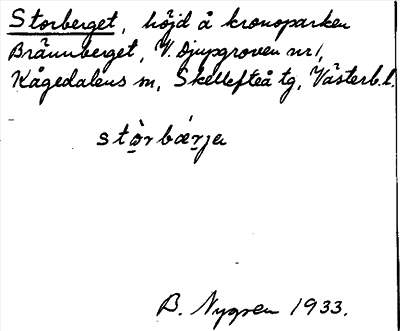 Storberget, höjd å kronoparken
Brännberget, V. Djupgroven nr 1,
Kågedalens m, Skellefteå tg, Västerb. l.
stòrbǽrja
B. Nygren 1933.